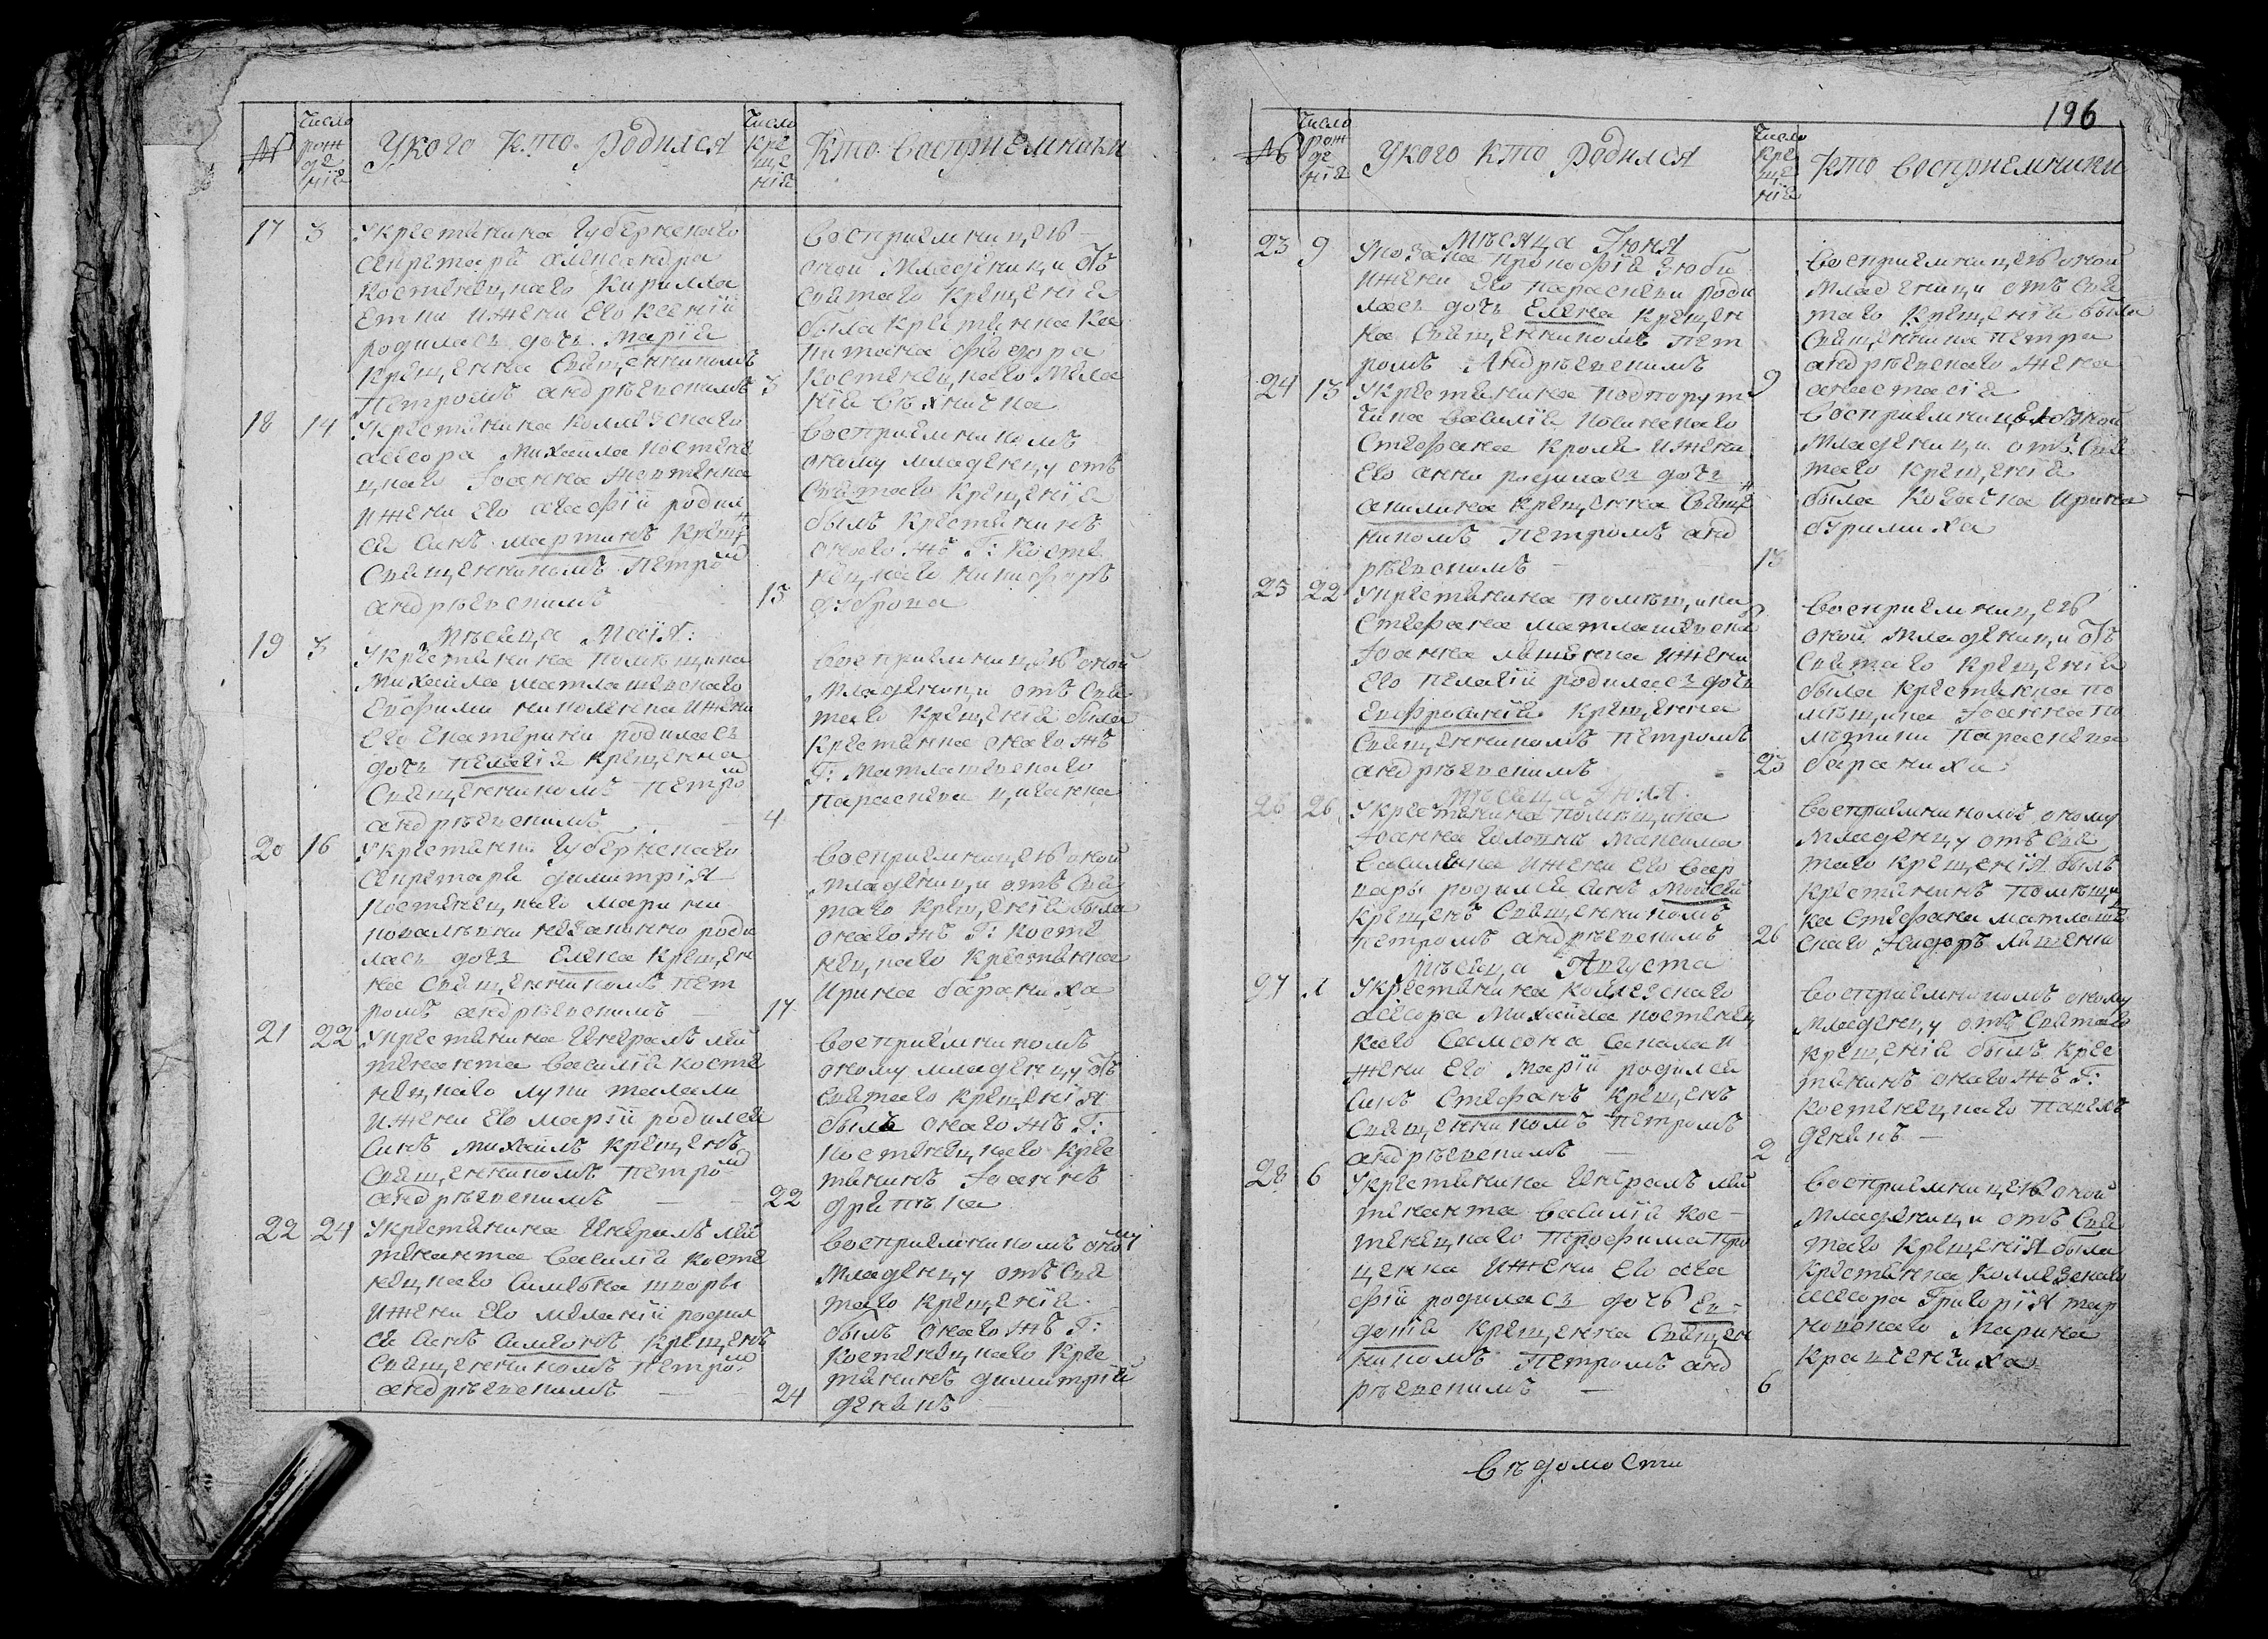 №
Число рождения
У кого кто родился
Число крещения
Кто восприемники
17 3
У крестянина Губернскаго
секретаря александра
Костенецкаго Кирилла
и жени Его Ксении
родилась дочь Мария
Крещенна Священникомъ
Петромъ андрѣевскимъ 3
восприемницею
оной младеници отъ
святаго крещения
была крестянка Ка
питана феодора
Костенецкаго Мела
ния
18 14
У крестянина коллезскаго
ассесора Михаила костене
цкаго Иоанна
и жени Его агафии родил
ся синъ мартинъ крещенъ
Священникомъ Петромъ
андрѣевскимъ 15
восприемникомъ
оному младенцу отъ
Святаго крещения
былъ крестянинъ
онаго жъ Г: Косте
нецкаго никифоръ
19 3
Мѣсяца Маія:
У крестянина помѣщика
Михаила матлашевскаго
Евфима николенка и жени
Его Екатерини родилась
дочь пелагия крещенна
Священникомъ Петромъ
андрѣевскимъ 4
восприемницею оной
младеници отъ свя
таго крещения была
крестянка онаго жъ
Г: Матлашевскаго
параскева
20 16
У крестянки Губернскаго
Секретаря димитрія
костенецкаго марини
незаконно роди
лась дочь Елена крещен
на священникомъ пет
ромъ андрѣевскимъ 17
восприемницею оной
младеници отъ Свя
таго крещения была
онаго жъ Г: Косте
нецкаго крестянка
ирина бараниха
21 22
У крестянина Генералъ лей
тенанта василия косте
нецкаго луки
и жени Его марии родился
синъ михаилъ крещенъ
Священникомъ Петромъ
андрѣевскимъ 22
восприемникомъ
оному младенцу отъ
святаго крещенія
былъ онаго жъ Г:
костенецкаго крес
тянинъ Иоаннъ
22 24
У крестянина Генералъ лей
тенанта василия косте
нецкаго Симеона
и жени Его мелании родил
ся синъ Симеонъ крещенъ
Священникомъ Петромъ
андрѣевскимъ 24
восприемникомъ оному
младенцу отъ свя
таго крещения
былъ онаго жъ Г:
костенецкаго крес
тянинъ димитрий
196
№
Число рождения
У кого кто родился
Число крещения
Кто восприемники
23 9
Мѣсяца Іюня
У козака прокофия
и жени Его параскеви роди
лась дочь Елена крещен
на Священникомъ пет
ромъ Андрѣевскимъ 9
восприемницею оной
младеници отъ Свя
таго крещения была
священника петра
андрѣевскаго жена
анастасия
24 13
У крестянина подпорут
чика василия
Стефана кроля и жени
Его анни родилась дочь
акилина крещенна Священ
никомъ Петромъ анд
рѣевскимъ 13
восприемницею оной
младеници отъ Свя
таго крещения
была козачка Ирина
25 22
У крестянина помѣщика
Стефана матлашевска
Иоанна и жени
Его пелагии родилась дочь
Евфросиния крещенна
Священникомъ петромъ
андрѣевскимъ 23
восприемницею
оной младеници отъ
Святаго крещения
была крестянка по
мѣщика Иоанна по
лѣтики Параскева
бараниха
26 26
Мѣсяца Іюля
У крестянина помѣщика
Иоанна Максима
и жени Его вар
вары родился синъ Моисей
крещенъ Священникомъ
петромъ андрѣевскимъ 26
восприемникомъ оному
младенцу отъ свя
таго крещенія былъ
крестянинъ помѣщи
ка Стефана матлаше
скаго
27 1
Мѣсяца Августа
У крестянина коллезскаго
асесора Михаила костенец
каго Самсона и
жени Его марии родился
синъ Стефанъ крещенъ
Священникомъ петромъ
андрѣевскимъ 2
восприемникомъ оному
младенцу отъ Святаго
крещения былъ крес
тянинъ онаго жъ Г:
костенецкаго Павелъ
28 6
У крестянина Генералъ лей
тенанта василия кос
тенецкаго Трофима
и жени Его ага
фии родилась дочь Ев
докия крещенна Священ
никомъ Петромъ анд
рѣевскимъ 6
восприемницею оной
младеници отъ Свя
таго крещенія была
крестянка коллезскаго
асесора Григорія тар
новскаго Марина
вѣдомости